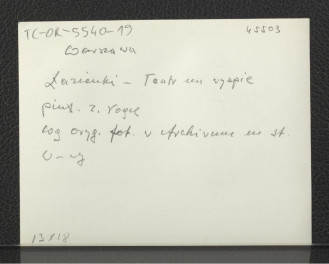 TC-OR-5540-19 45503
Warszawa
Łazienki – Teatr na wyspie
pinx. Z. Vogel
wg oryg. fot. w Archiwum m. st.
W-wy
13918